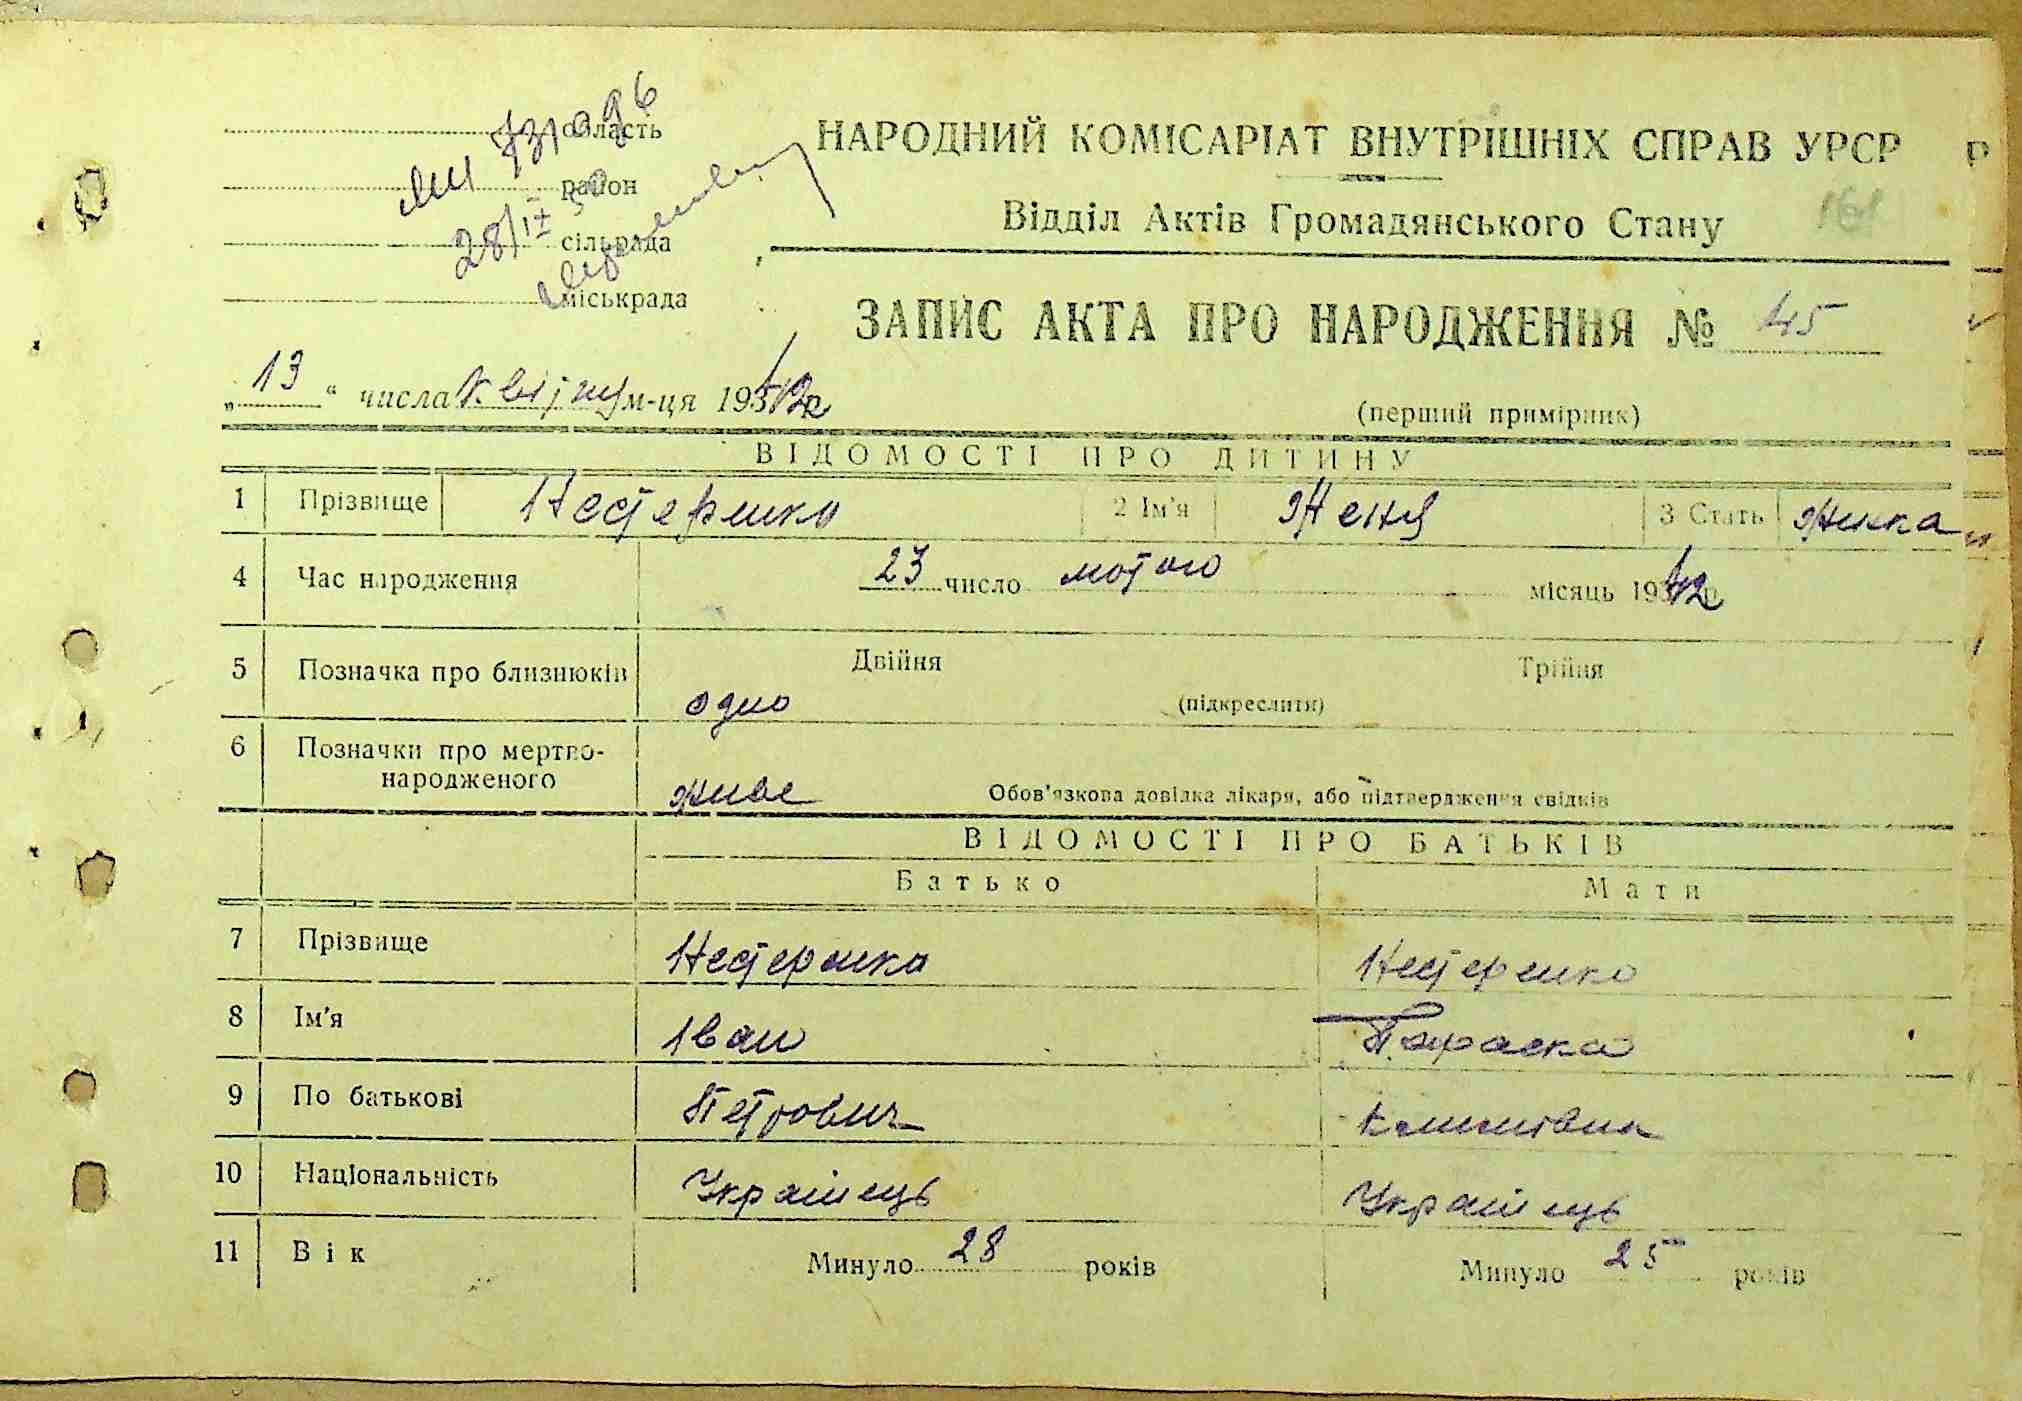 область
район
28/IX 50
сільрада
міськрада
НАРОДНИЙ КОМІСАРІАТ ВНУТРІШНІХ СПРАВ УРСР
Відділ Актів Громадянського Стану
161
ЗАПИС АКТА ПРО НАРОДЖЕННЯ № 45
„13“ числа м-ця 1942 р
(перший примірник)
ВІДОМОСТІ ПРО ДИТИНУ
1 Прізвище Нестеренко 2 Ім'я Женя 3 Стать жинка
4 Час народження 23 число лютого місяць 1942 р
5 Позначка про близнюків Двійня Трійня
одно (підкреслити)
6 Позначки про мертво-
народженого
живе Обов'язкова довідка лікаря, або підтвердження свідків
ВІДОМОСТІ ПРО БАТЬКІВ
Батько Мати
7 Прізвище Нестеренко Нестеренко
8 Ім'я Іван Параска
9 По батькові Петрович Климівна
10 Національність Українець Українець
11 Вік Минуло 28 років Минуло 25 років